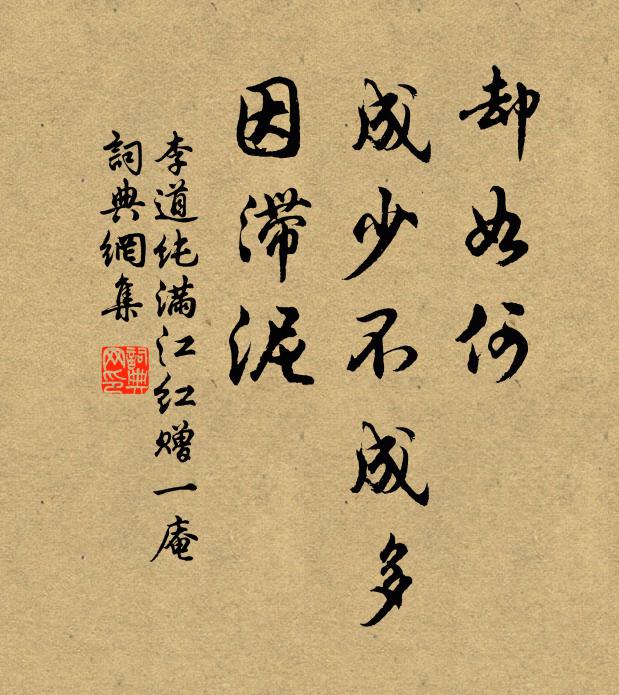 却如何
成少不成多
因滞泥
李道纯满江红赠一庵
詞典網集
詞典网印